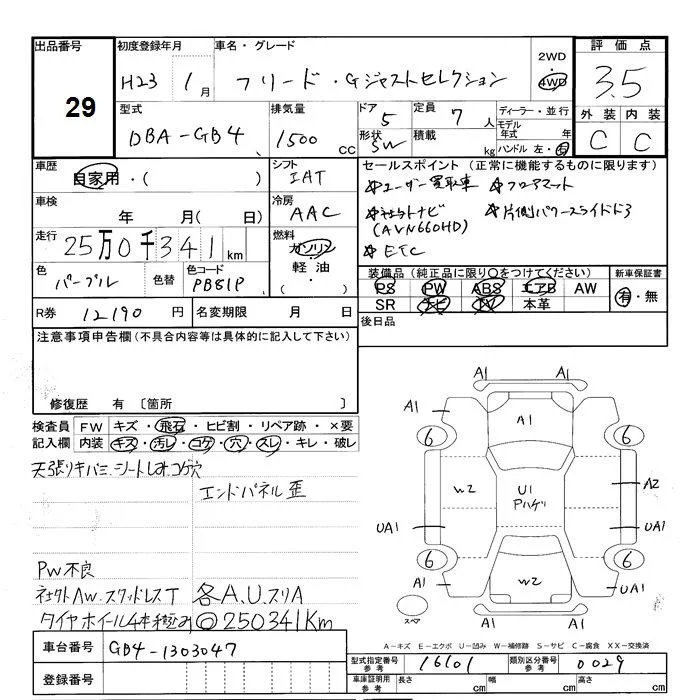 出品番号 初度登録年月 車名・グレード 2WD 評価点
29 H23 1月 フリード・Gジャストセレクション 4WD 3.5
型式 排気量 ドア 定員 ディーラー・並行 外装 内装
DBA-GB4 1500cc 5 7人 モデル年式 年 C C
形状 SW 積載 kg ハンドル 左・右
車歴 シフト セールスポイント(正常に機能するものに限ります)
自家用・( ) IAT ☆ユーザー買取車 ☆フロアマット
車検 冷房
年 月( 日) AAC ☆社外ナビ ☆片側パワースライドドア
(AVN660HD)
走行 燃料
25万0千341km ガソリン ☆ETC
軽油
色 色替 色コード 装備品(純正品に限り○をつけてください) 新車保証書
パープル PB81P PS PW ABS エアB AW 有・無
SR ナビ TV 本革
R券 12190円 名変期限 月 日 後日品
注意事項申告欄(不具合内容等は具体的に記入して下さい)
修復歴 有 〔箇所 〕
検査員 FW キズ・飛石・ヒビ割・リペア跡・×要
記入欄 内装 キズ・汚レ・コゲ・穴・スレ・キレ・破レ
天張りキバミ シートしみコゲ穴
エンドパネル歪
PW不良
社外AW.スタッドレスT 各A.U.スリA
タイヤホイール4本積み ◎250341Km
A1
A1 A1 A1
6 6
W2 U1 A2
Pハゲリ
UA1 UA1
6 6
A1 W2 UA1
A1 A1
スペア
A-キズ E-エクボ U-凹み W-補修跡 S-サビ C-腐食 XX-交換済
車台番号 GB4-1303047
登録番号
型式指定番号 参考 16101 類別区分番号 参考 0029
車庫証明用 参考 長さ cm 幅 cm 高さ cm